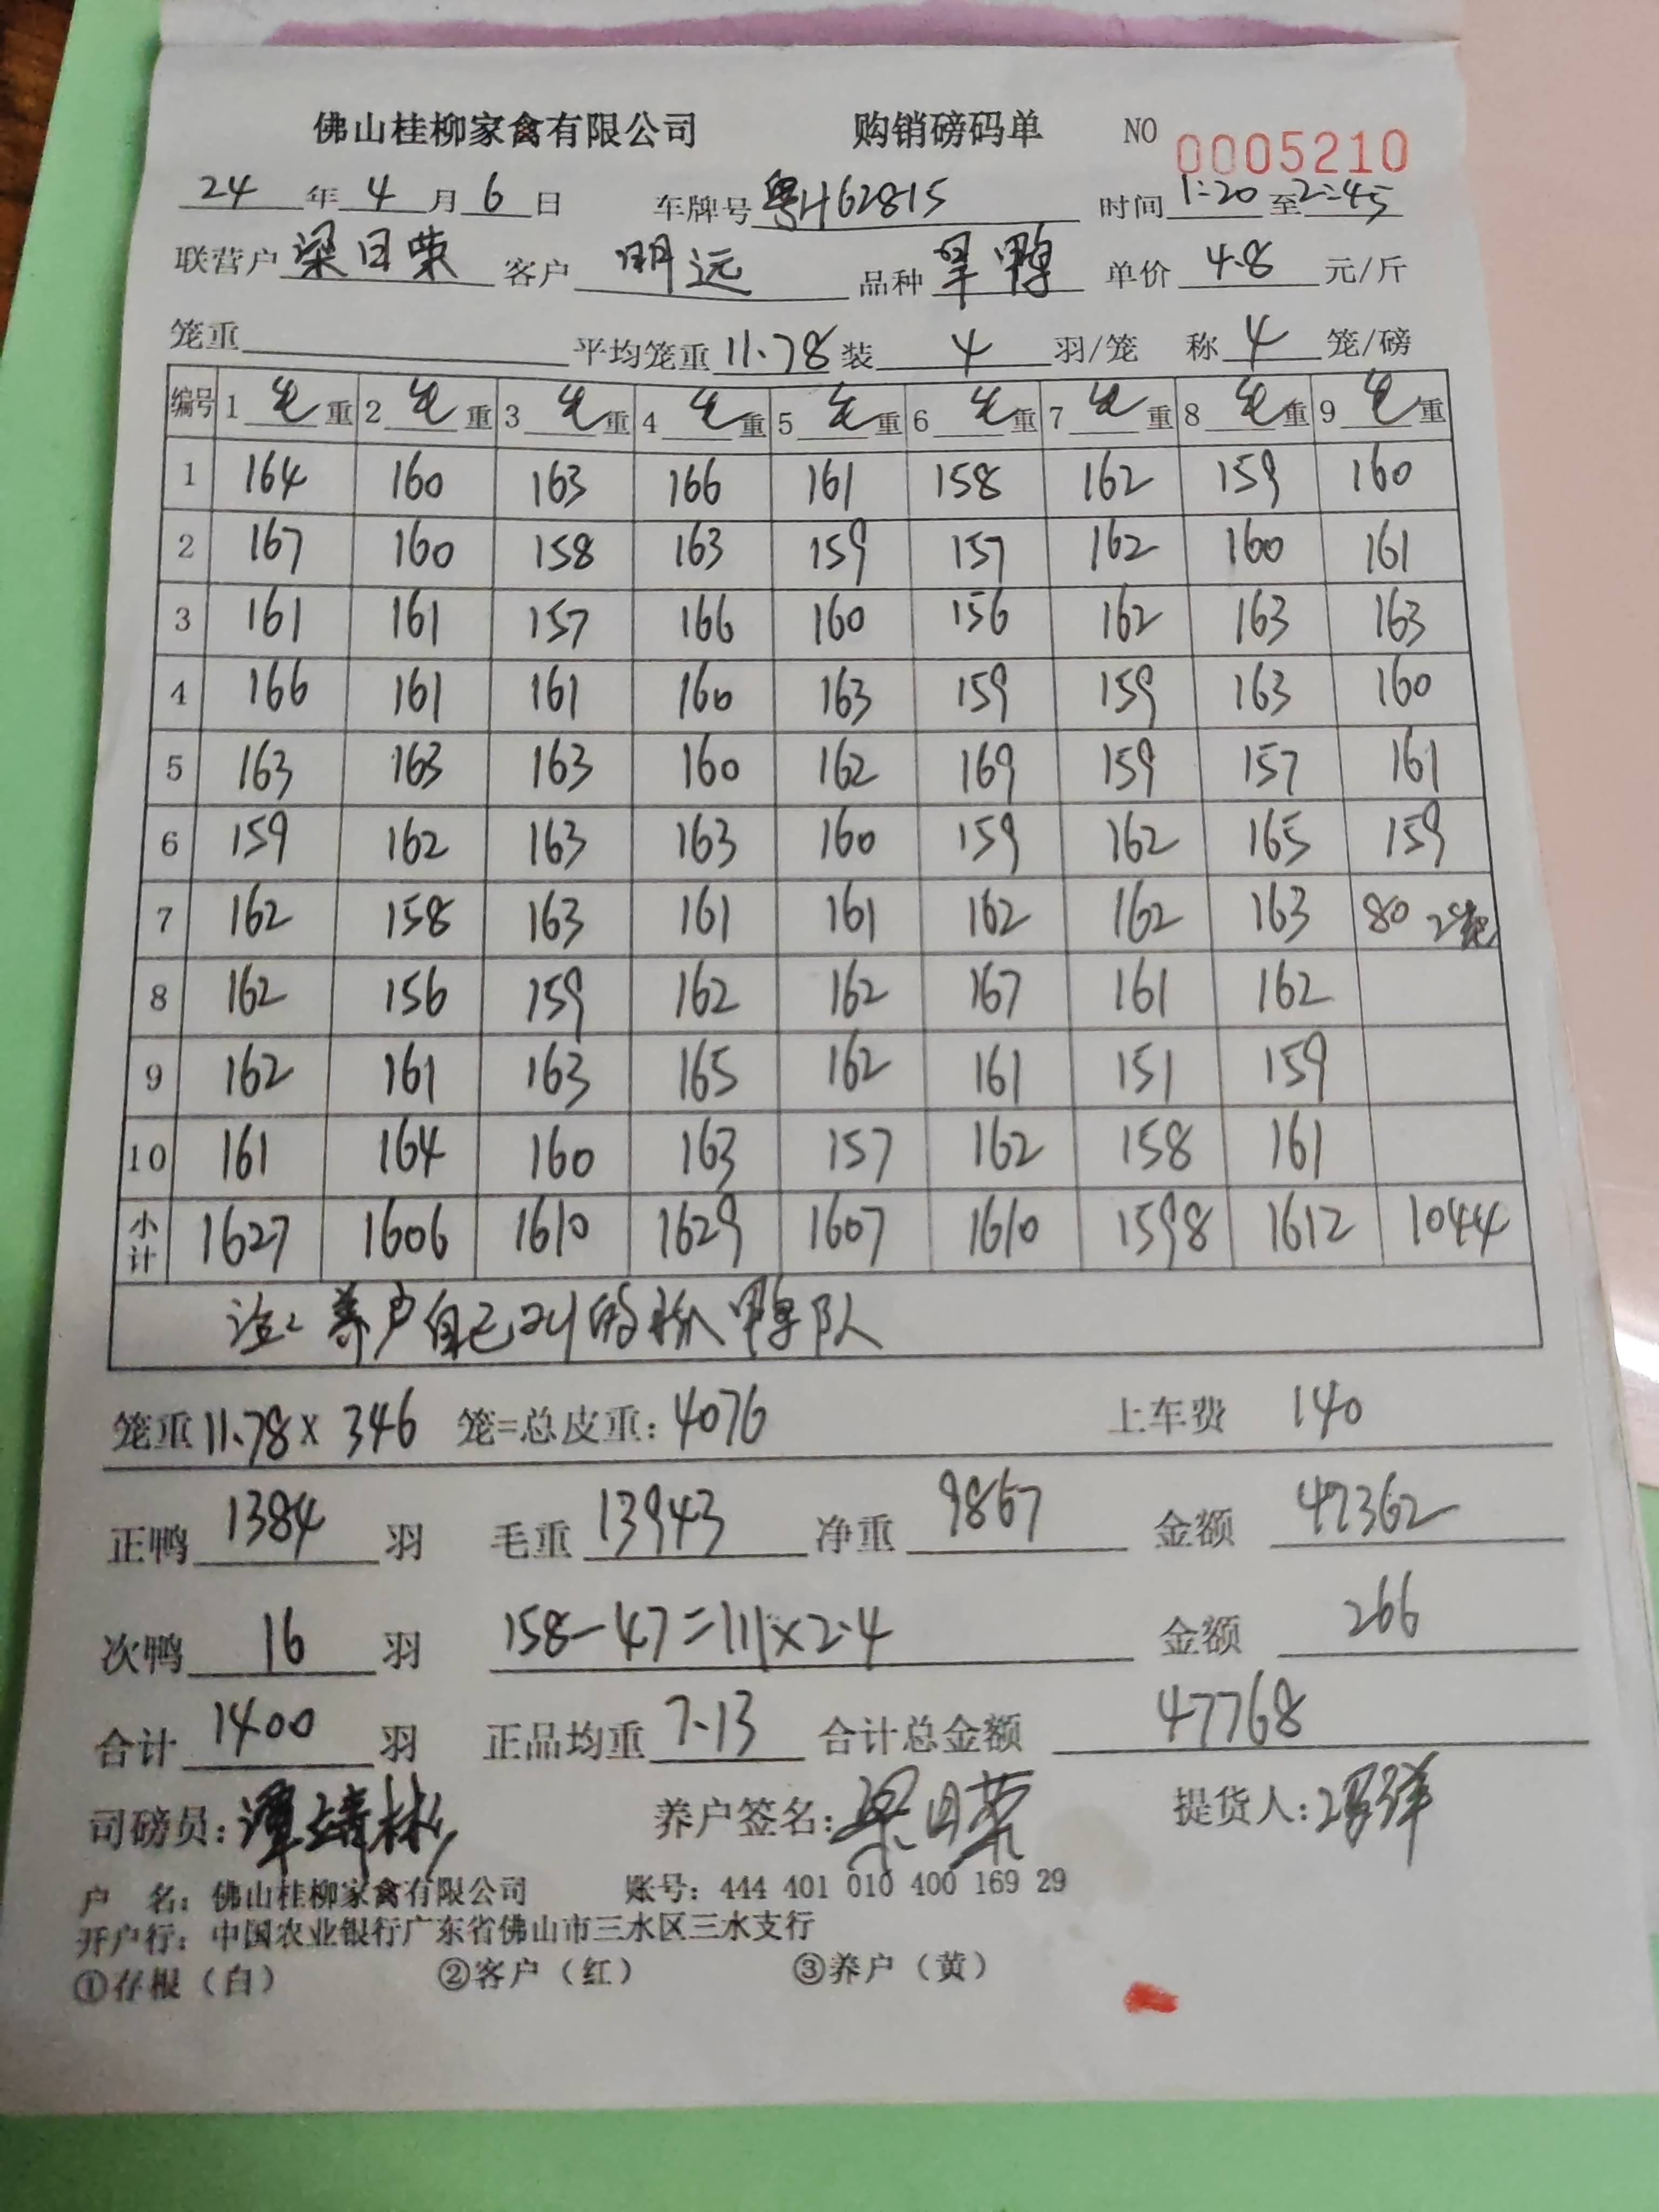 佛山桂柳家禽有限公司 购销磅码单 NO 0005210
24年4月6日 车牌号 粤H62815 时间 1:20 至 2:45
联营户 梁日荣 客户 明远 品种 旱鸭 单价 4.8 元/斤
笼重 平均笼重 11.78 装 4 羽/笼 称 4 笼/磅
编号 1 毛重 2 毛重 3 毛重 4 毛重 5 毛重 6 毛重 7 毛重 8 毛重 9 毛重
1 164 160 163 166 161 158 162 159 160
2 167 160 158 163 159 157 162 160 161
3 161 161 157 166 160 156 162 163 163
4 166 161 161 160 163 159 159 163 160
5 163 163 163 160 162 169 159 157 161
6 159 162 163 163 160 159 162 165 159
7 162 158 163 161 161 162 162 163 80 2笼
8 162 156 159 162 162 167 161 162
9 162 161 163 165 162 161 151 159
10 161 164 160 163 157 162 158 161
小计 1627 1606 1610 1629 1607 1610 1598 1612 1044
注: 养户自己叫的抓鸭队
笼重 11.78 x 346 笼=总皮重: 4076 上车费 140
正鸭 1384 羽 毛重 13943 净重 9867 金额 47362
次鸭 16 羽 158-47=111x2.4 金额 266
合计 1400 羽 正品均重 7.13 合计总金额 47768
司磅员: 谭靖彬 养户签名: 梁日荣 提货人:
户 名: 佛山桂柳家禽有限公司 账号: 444 401 010 400 169 29
开户行: 中国农业银行广东省佛山市三水区三水支行
①存根（白） ②客户（红） ③养户（黄）